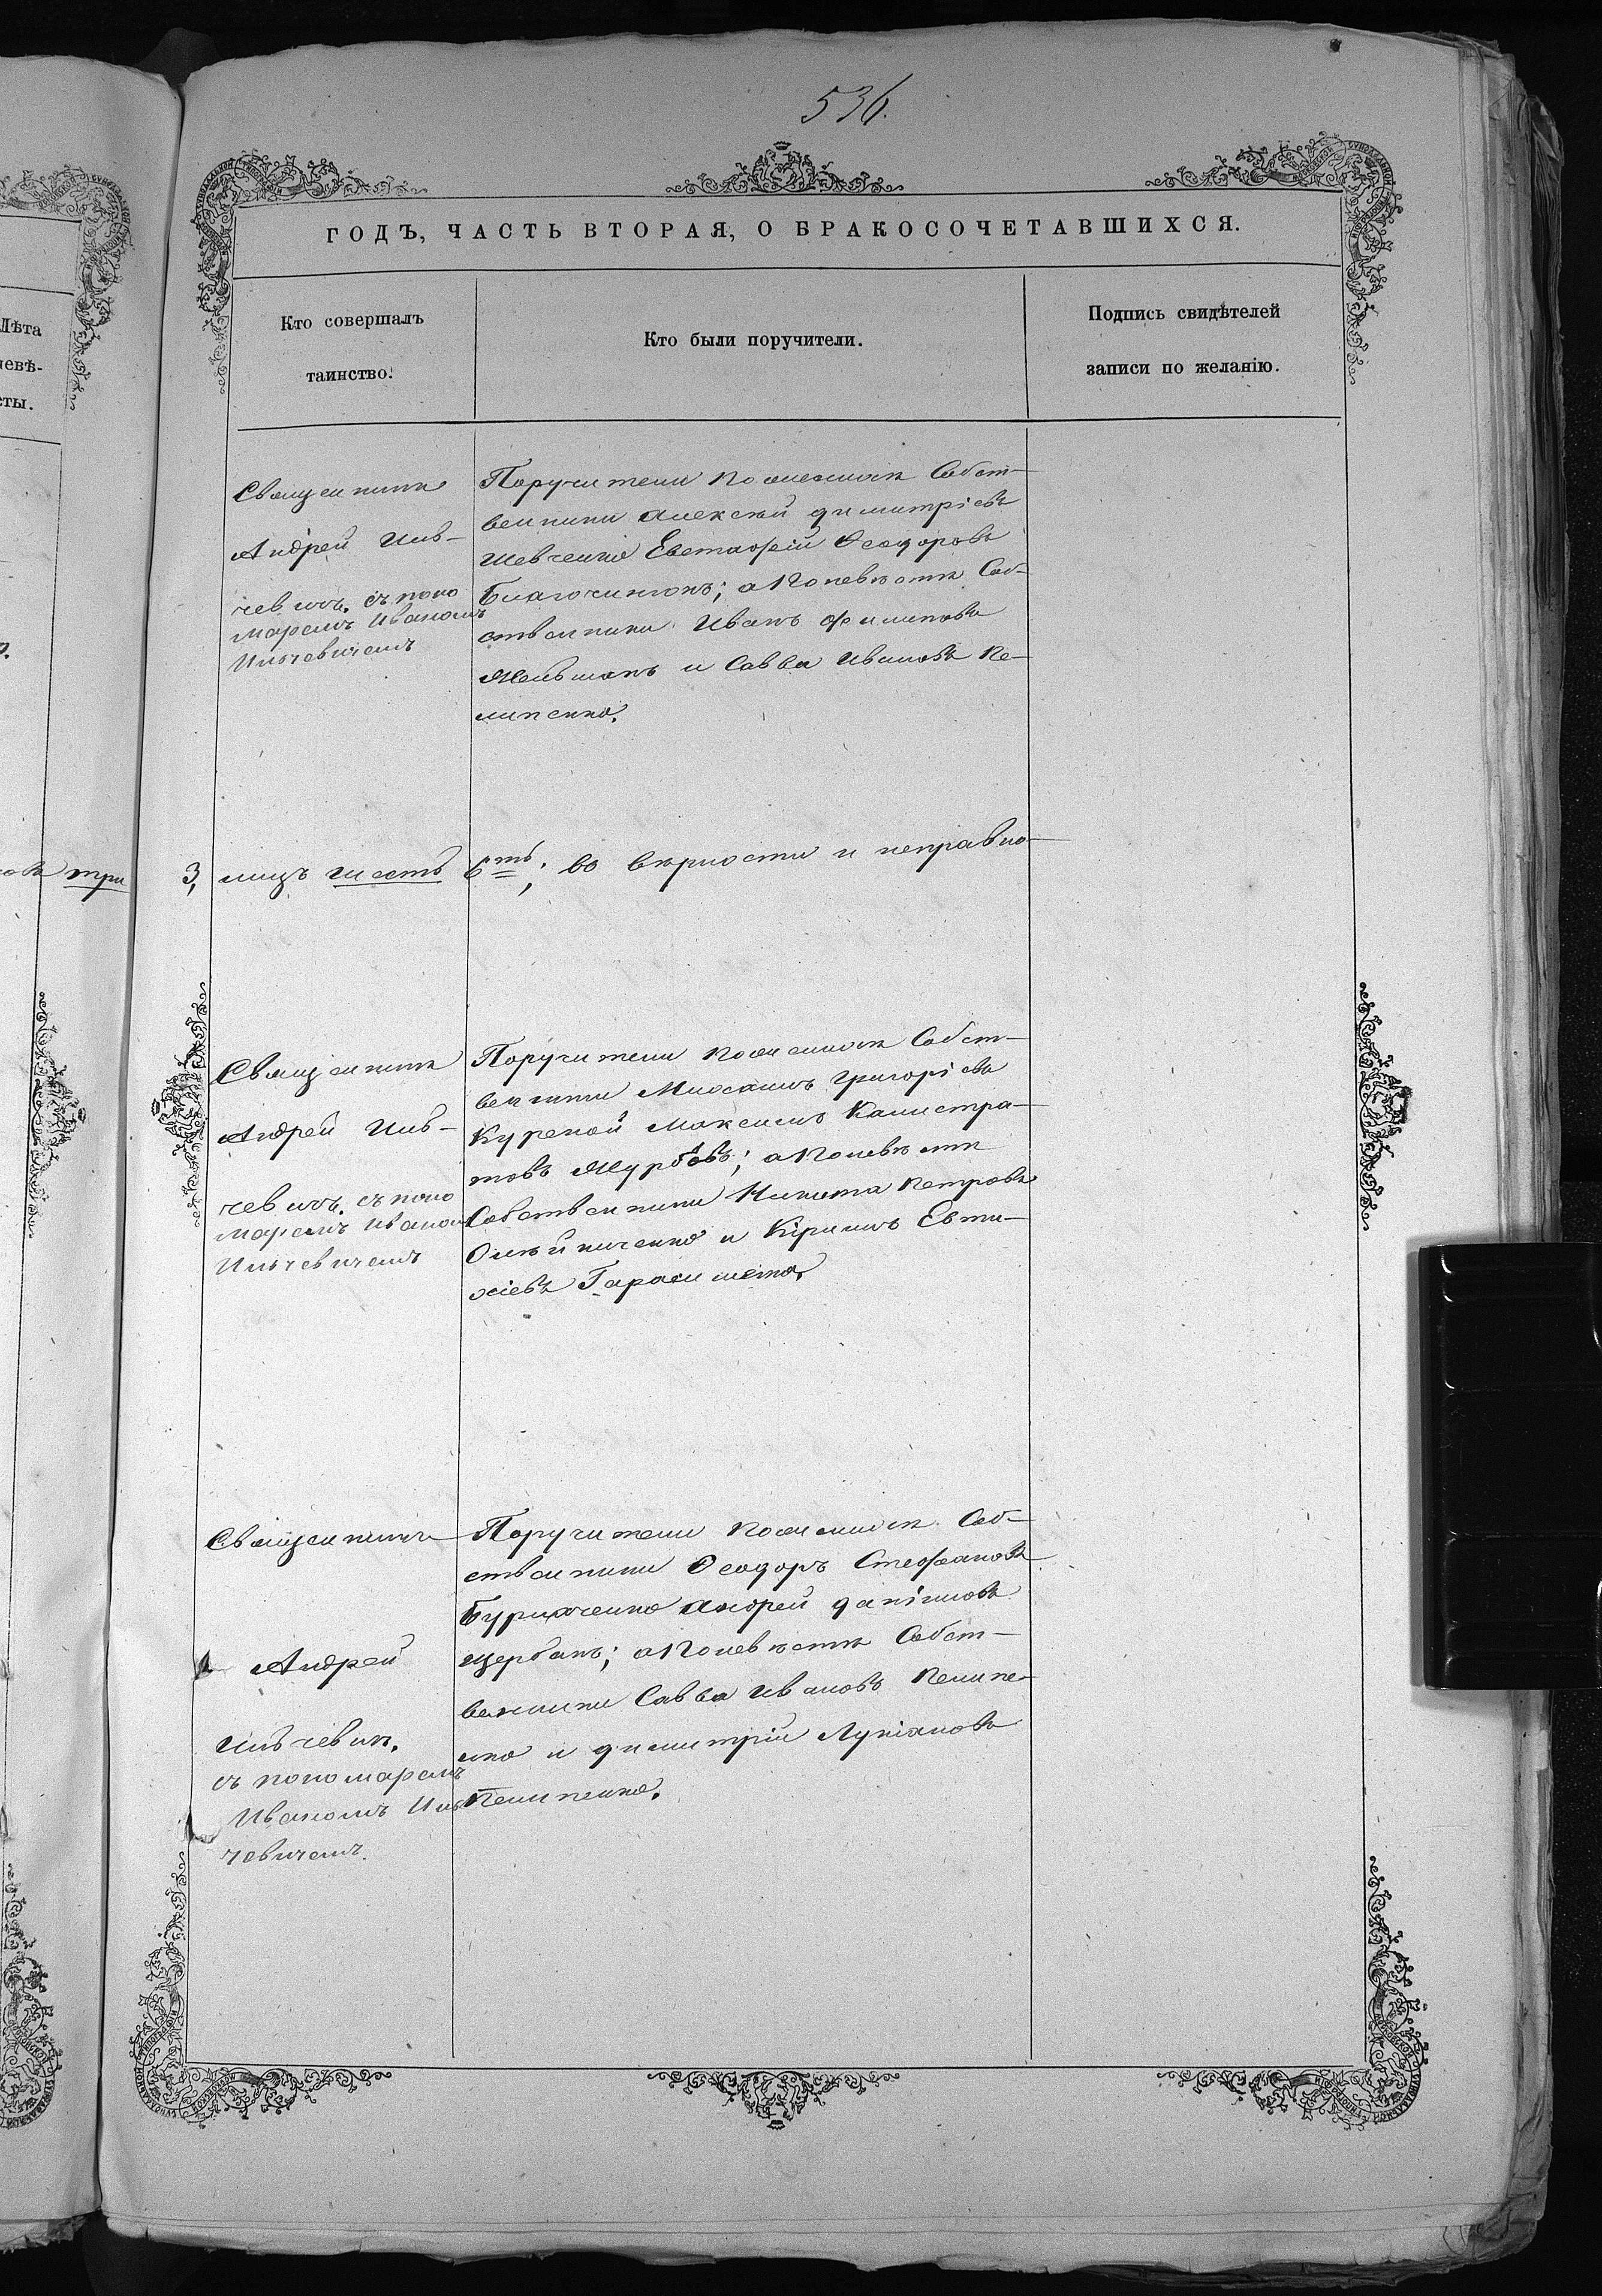 536.
ГОДЪ, ЧАСТЬ ВТОРАЯ, О БРАКОСОЧЕТАВШИХСЯ.
Лѣта
невѣ-
сты.
Кто совершалъ
таинство.
Кто были поручители.
Подпись свидѣтелей
записи по желанію.
Священникъ
Андрей Иль-
чевичъ. съ поно
маремъ Иваномъ
Ильчевичемъ
Поручители по женихѣ Собст-
венники Алексѣй Димитріевъ
Шевченко Евстафій Ѳеодоровъ
; а по невѣстѣ Соб-
ственники Иванъ Филиповъ
и Савва Ивановъ Пе-
липенко.
три
3, лицъ шесть 6ть; во вѣрности и неправно-
Священникъ
Андрей Иль-
чевичъ. съ поно
маремъ Иваномъ
Ильчевичемъ
Поручители по женихѣ Собст-
венники Михаилъ Григорієвъ
Курепой Максимъ Калистра-
товъ ; а по невѣстѣ
Собственники Никита Петровъ
Олѣйниченко и Кірилъ Евти-
хіевъ
Священникъ
Андрей
Ильчевичъ.
съ пономаремъ
Иваномъ Иль
чевичемъ.
Поручители по женихѣ Соб-
ственники Ѳеодоръ Стефановъ
Андрей Даніиловъ
Щербакъ; а по невѣстѣ Собст-
венники Савва Ивановъ Пелипе-
нко и Димитрій Лукіановъ
Пелипенко.